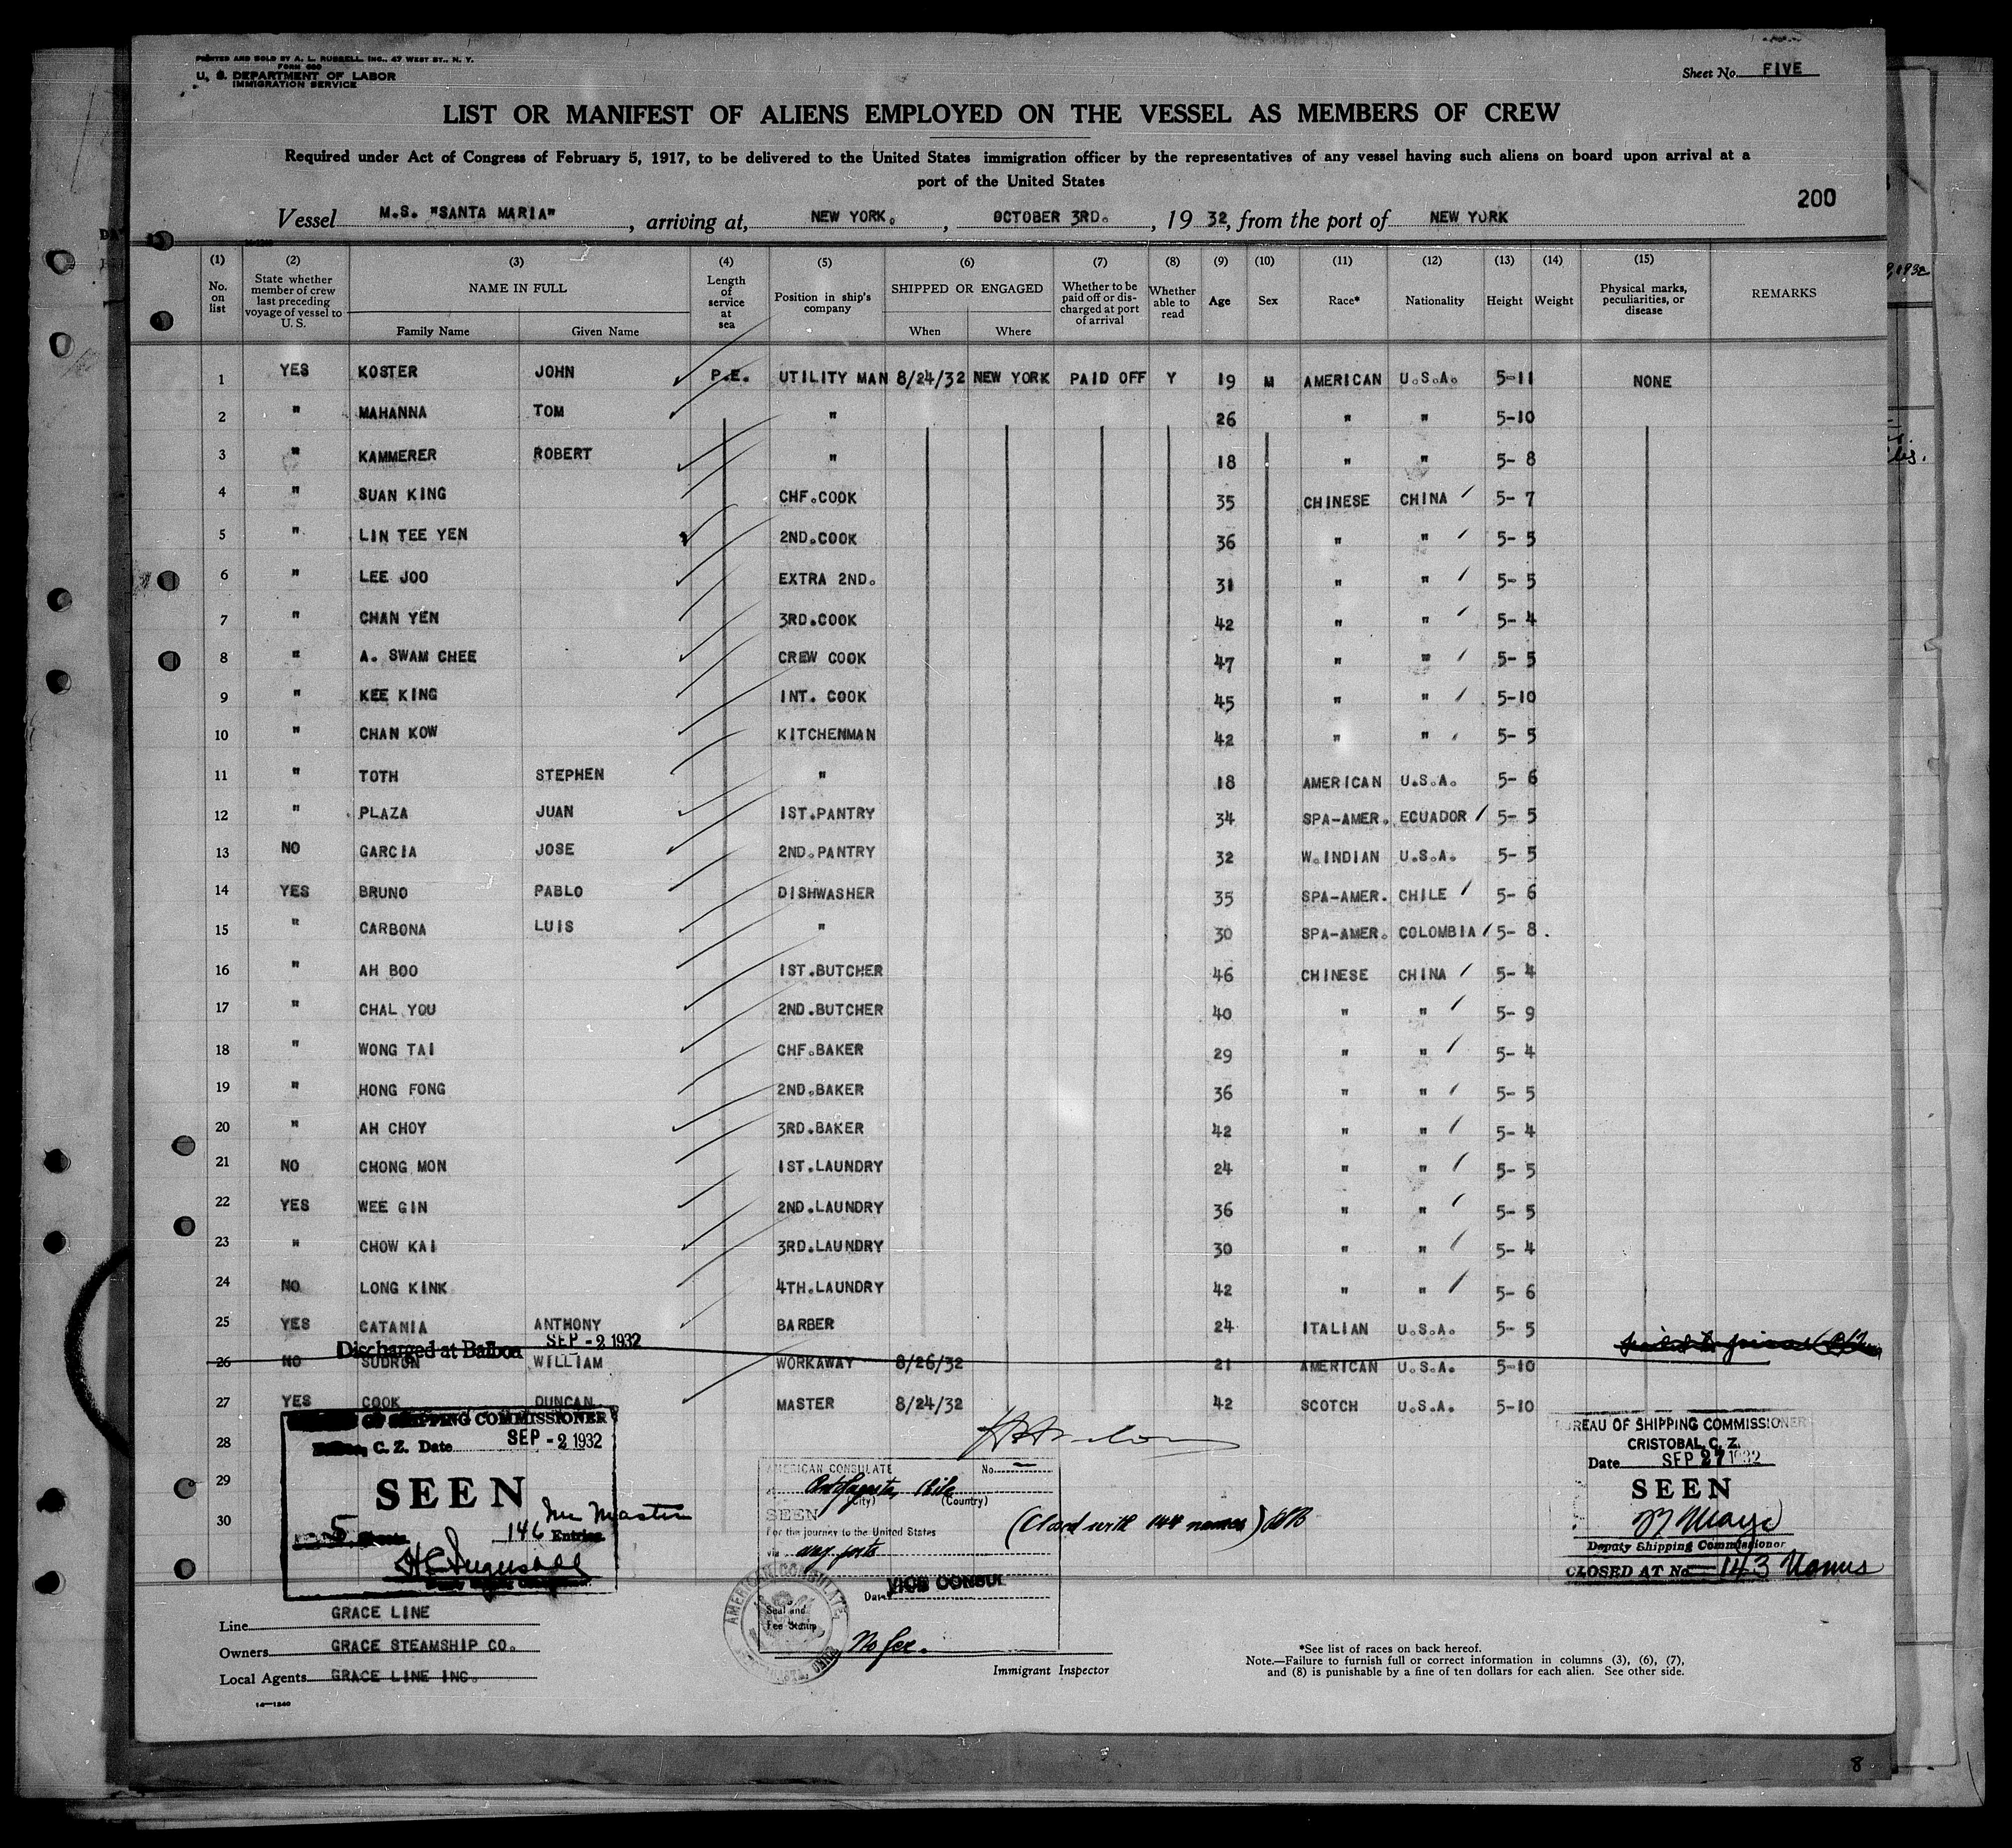 PRINTED AND SOLD BY A. L. RUSSELL, INC., 47 WEST ST., N. Y.
FORM 680
U. S. DEPARTMENT OF LABOR
IMMIGRATION SERVICE
Sheet No. FIVE
LIST OR MANIFEST OF ALIENS EMPLOYED ON THE VESSEL AS MEMBERS OF CREW
Required under Act of Congress of February 5, 1917, to be delivered to the United States immigration officer by the representatives of any vessel having such aliens on board upon arrival at a
port of the United States
200
Vessel M.S. "SANTA MARIA", arriving at, NEW YORK., OCTOBER 3RD., 1932, from the port of NEW YORK
(1) No. on list (2) State whether member of crew last preceding voyage of vessel to U. S. (3) NAME IN FULL Family Name Given Name (4) Length of service at sea (5) Position in ship's company (6) SHIPPED OR ENGAGED When Where (7) Whether to be paid off or discharged at port of arrival (8) Whether able to read (9) Age (10) Sex (11) Race* (12) Nationality (13) Height (14) Weight (15) Physical marks, peculiarities, or disease REMARKS
1 YES KOSTER JOHN P.E. UTILITY MAN 8/24/32 NEW YORK PAID OFF Y 19 M AMERICAN U.S.A. 5-11 NONE
2 " MAHANNA TOM " 26 " " 5-10
3 " KAMMERER ROBERT " 18 " " 5- 8
4 " SUAN KING CHF.COOK 35 CHINESE CHINA 5- 7
5 " LIN TEE YEN 2ND.COOK 36 " " 5- 5
6 " LEE JOO EXTRA 2ND. 31 " " 5- 5
7 " CHAN YEN 3RD.COOK 42 " " 5- 4
8 " A. SWAM CHEE CREW COOK 47 " " 5- 5
9 " KEE KING INT. COOK 45 " " 5-10
10 " CHAN KOW KITCHENMAN 42 " " 5- 5
11 " TOTH STEPHEN " 18 AMERICAN U.S.A. 5- 6
12 " PLAZA JUAN 1ST.PANTRY 34 SPA-AMER. ECUADOR 5- 5
13 NO GARCIA JOSE 2ND.PANTRY 32 W.INDIAN U.S.A. 5- 5
14 YES BRUNO PABLO DISHWASHER 35 SPA-AMER. CHILE 5- 6
15 " CARBONA LUIS " 30 SPA-AMER. COLOMBIA 5- 8 .
16 " AH BOO 1ST.BUTCHER 46 CHINESE CHINA 5- 4
17 " CHAL YOU 2ND.BUTCHER 40 " " 5- 9
18 " WONG TAI CHF.BAKER 29 " " 5- 4
19 " HONG FONG 2ND.BAKER 36 " " 5- 5
20 " AH CHOY 3RD.BAKER 42 " " 5- 4
21 NO CHONG MON 1ST.LAUNDRY 24 " " 5- 5
22 YES WEE GIN 2ND.LAUNDRY 36 " " 5- 5
23 " CHOW KAI 3RD.LAUNDRY 30 " " 5- 4
24 NO LONG KINK 4TH.LAUNDRY 42 " " 5- 6
25 YES CATANIA ANTHONY BARBER 24 ITALIAN U.S.A. 5- 5
Discharged at Balboa SEP - 2 1932
26 NO SUDRON WILLIAM WORKAWAY 8/26/32 21 AMERICAN U.S.A. 5-10
27 YES COOK DUNCAN MASTER 8/24/32 42 SCOTCH U.S.A. 5-10
28
29
30
OF SHIPPING COMMISSIONER
C. Z. Date SEP - 2 1932
SEEN
Inc Master
5 146 Entries
AMERICAN CONSULATE No.
Antofagasta, Chile
(City) (Country)
SEEN
For the journey to the United States
via any ports
VICE CONSUL
Date
Seal and
Fee Stamp
No fee.
AMERICAN CONSULATE
(Closed with 144 names)
BUREAU OF SHIPPING COMMISSIONER
CRISTOBAL, C. Z.
Date SEP 27 1932
SEEN
Deputy Shipping Commissioner
CLOSED AT No. 143 Names
Line GRACE LINE
Owners GRACE STEAMSHIP CO.
Local Agents GRACE LINE INC.
14—1240
Immigrant Inspector
*See list of races on back hereof.
Note.—Failure to furnish full or correct information in columns (3), (6), (7),
and (8) is punishable by a fine of ten dollars for each alien. See other side.
8